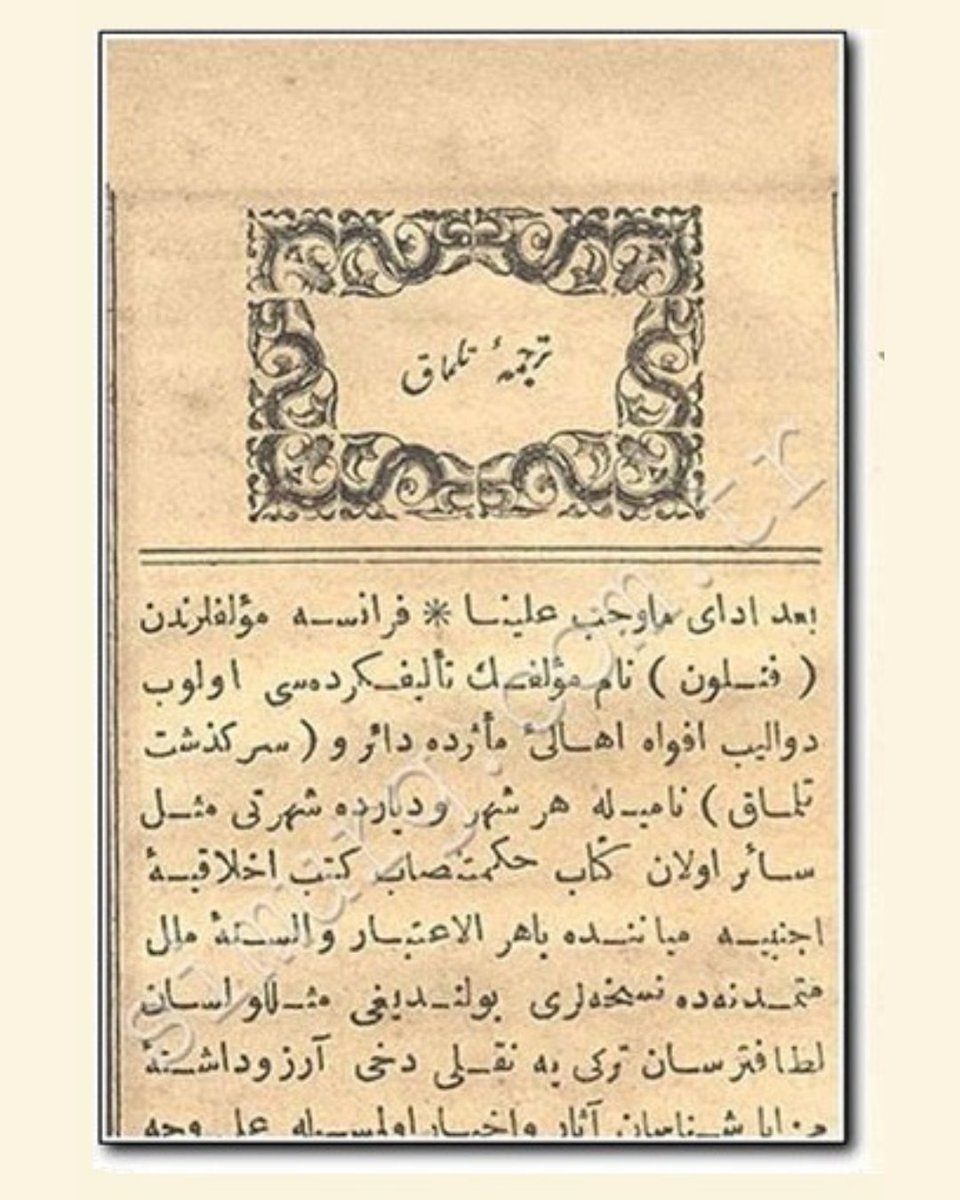 ترجمهٔ تلماق
بعد ادای ماوجب علینا * فرانسه مؤلفلرندن
( فنلون ) نام مؤلفك تألیفكرده‌سی اولوب
دوالیب افواه اهالیٔ مأثرده دائر و ( سركذشت
تلماق ) نامیله هر شهر ودیارده شهرتی مثل
سائر اولان كتاب حكمتنصاب كتب اخلاقیهٔ
اجنبیه میاننده باهر الاعتبار والسنهٔ ملل
متمدنه‌ده نسخه‌لری بولندیغی مثللو لسان
لطافترسان تركی یه نقلی دخی آرزوداشتهٔ
مزایا شناسان آثار واخبار اولمسیله علی وجه
simurg.com.tr